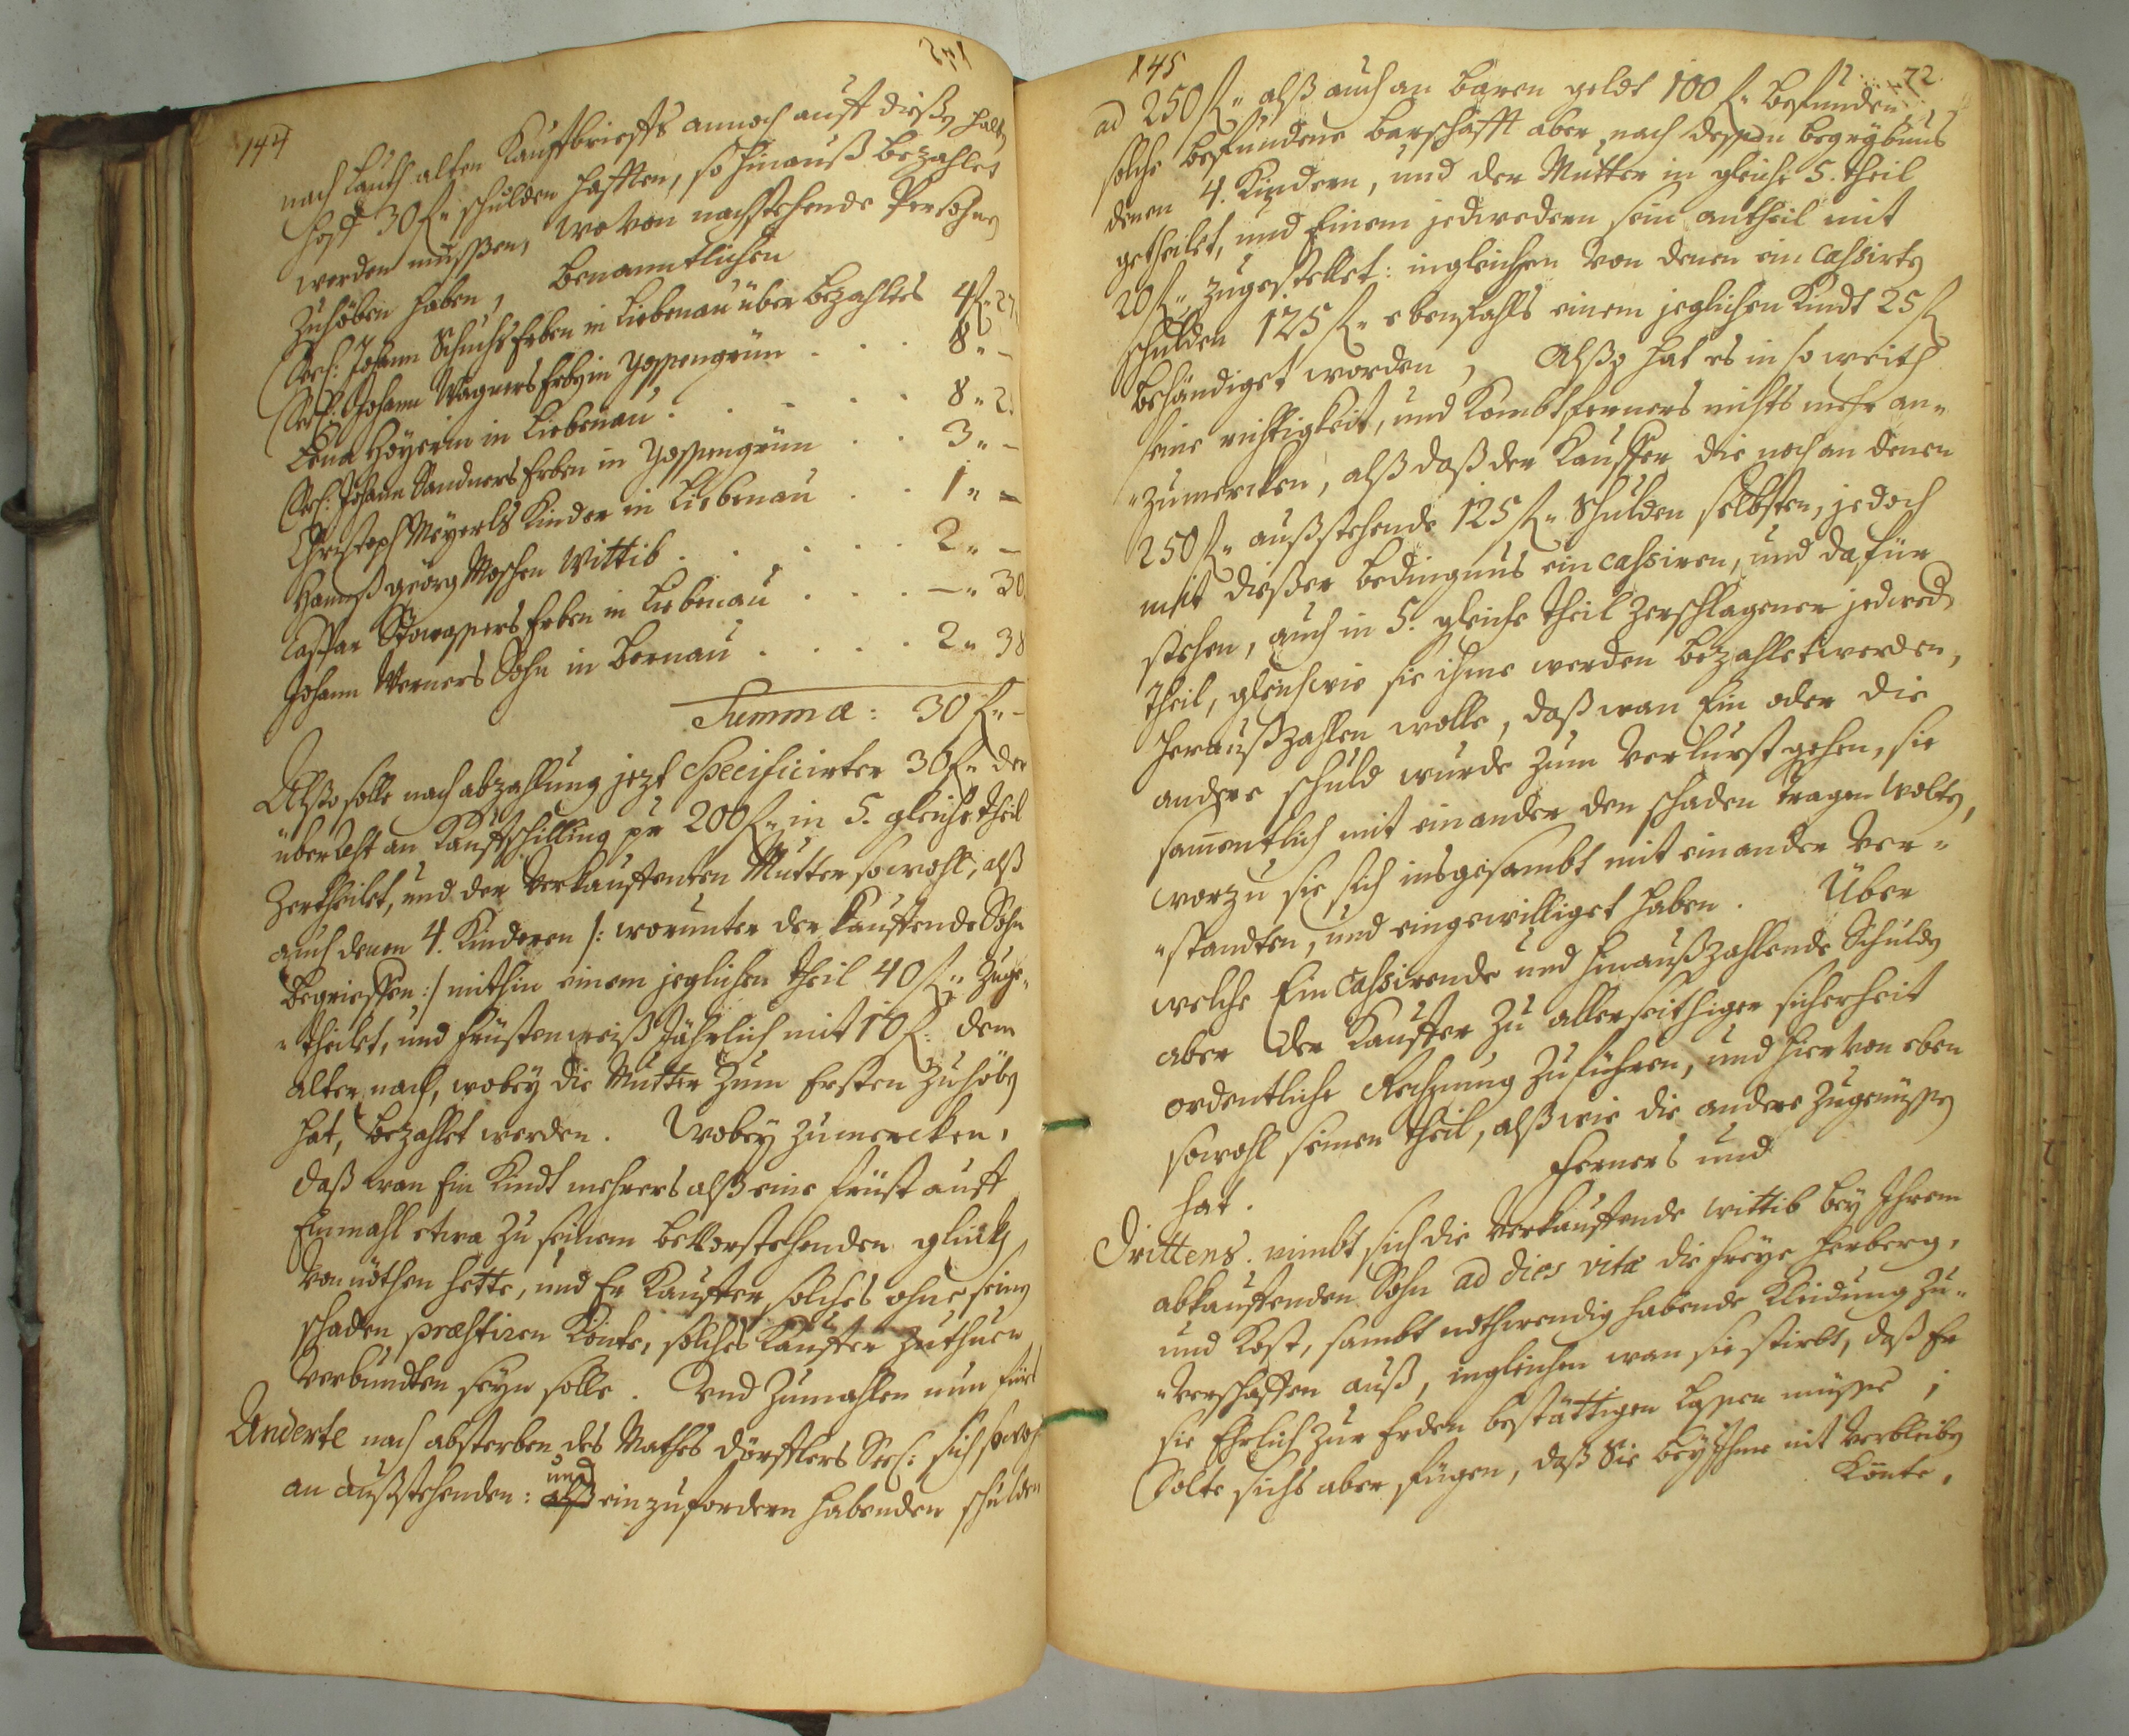 144
nach lauth alten Kauffbrieffs annoch auff dießen halben
Hoff 30 fl. schulden hafften, so hinauß bezahlet
werden müssen, wovon nachstehende Persohnen
zuhöben haben, benanntlichen
Seel: Johann Schuchs Erben in Liebenau über bezahltes 4 fl. 27
Seel: Johann Wagners Erben in Yessengrün . . . 8 " –
Lena Hoyerin in Liebenau . . . . . 8 " 2
Seel: Johann Sandners Erben in Yessengrün . . 3 " –
Christoph Meyerls Kinder in Liebenau . . 1 " –
Hannß Georg Maschen Wittib . . . . . 2 " –
Caspar Erben in Liebenau . . . – " 30
Johann Werners Sohn in Bernau . . . . 2 " 38
Summa: 30 fl. –
Alßo solle nach abzahlung jezt Specificirter 30 fl. der
überrest an Kauffschilling pr 200 fl. in 5. gleiche theil
zertheilet, und der Verkauffenten Mutter sowohl, alß
auch denen 4. Kinderen /: worunter der kauffende Sohn
begrieffen :/ mithin einem jeglichen theil 40 fl. zuge-
-theilet, und früstenweiß Jährlich mit 10 fl. dem
alter nach, wobey die Mutter zum Ersten zuhöben
hat, bezahlet werden. Wobey zumercken,
daß wan Ein Kindt mehrers alß eine früst auff
Einmahl etwa zu seinem beVorstehenden glück
von nöthen hette, und Er Kauffer solches ohne seinen
schaden præstiren könte, solches Kauffer zuthuen
verbundten seyn solle. Und zumahlen nun fürs
Anderte nach absterben des Mathes Dörfflers Seel: sich sowohl
an außstehenden: alß und einzufordern habenden schulden
145
72.
ad 250 fl. alß auch an baren geldt 100 fl. befunden,
solche befundene barschafft aber nach dessen begräbnus
denen 4. Kindern, und der Mutter in gleiche 5. theil
getheilet, und Einem jedwedern sein antheil mit
20 fl. zugestellet: ingleichen von denen ein cassirten
schulden 125 fl. ebenfahls einem jeglichen Kindt 25 fl
behändiget worden, Alßo hat es in so weith
seine richtigkeit, und kombt ferners nichts mehr an-
-zumercken, alß daß der Kauffer die noch an denen
250 fl. außstehende 125 fl. schulden selbsten, jedoch
mit dießer bedingnus ein cassiren, und dafür
stehen, auch in 5. gleiche theil zerschlagener jedweden
theil, gleichwie sie ihme werden bezahlet werden,
herauß zahlen wolle, daß wan Ein oder die
andere schuld wurde zum Verlurst gehen, sie
samentlich mit einander den schaden tragen wolten,
worzu sie sich insgesambt mit einander ver-
-standten, und eingewilliget haben. Über
welche Ein Cassirende und hinauß zahlende Schulden
aber der Kauffer zu allerseithiger sicherheit
ordentliche Rechnung zuführen, und hiervon eben
sowohl seinen theil, alß wie die andere zugenüssen
hat. Ferners und
Drittens. nimbt sich die verkauffende wittib bey Ihrem
abkauffenden Sohn ad dies vitæ die freye herberg,
und Kost, sambt nothwendig habende Kleidung zu-
-verschaffen auß, ingleichen wan sie stirbt, daß Er
sie Ehrlich zur Erden bestättigen lassen müsse;
Solte sichs aber fügen, daß Sie bey Ihme nit verbleiben
könte,